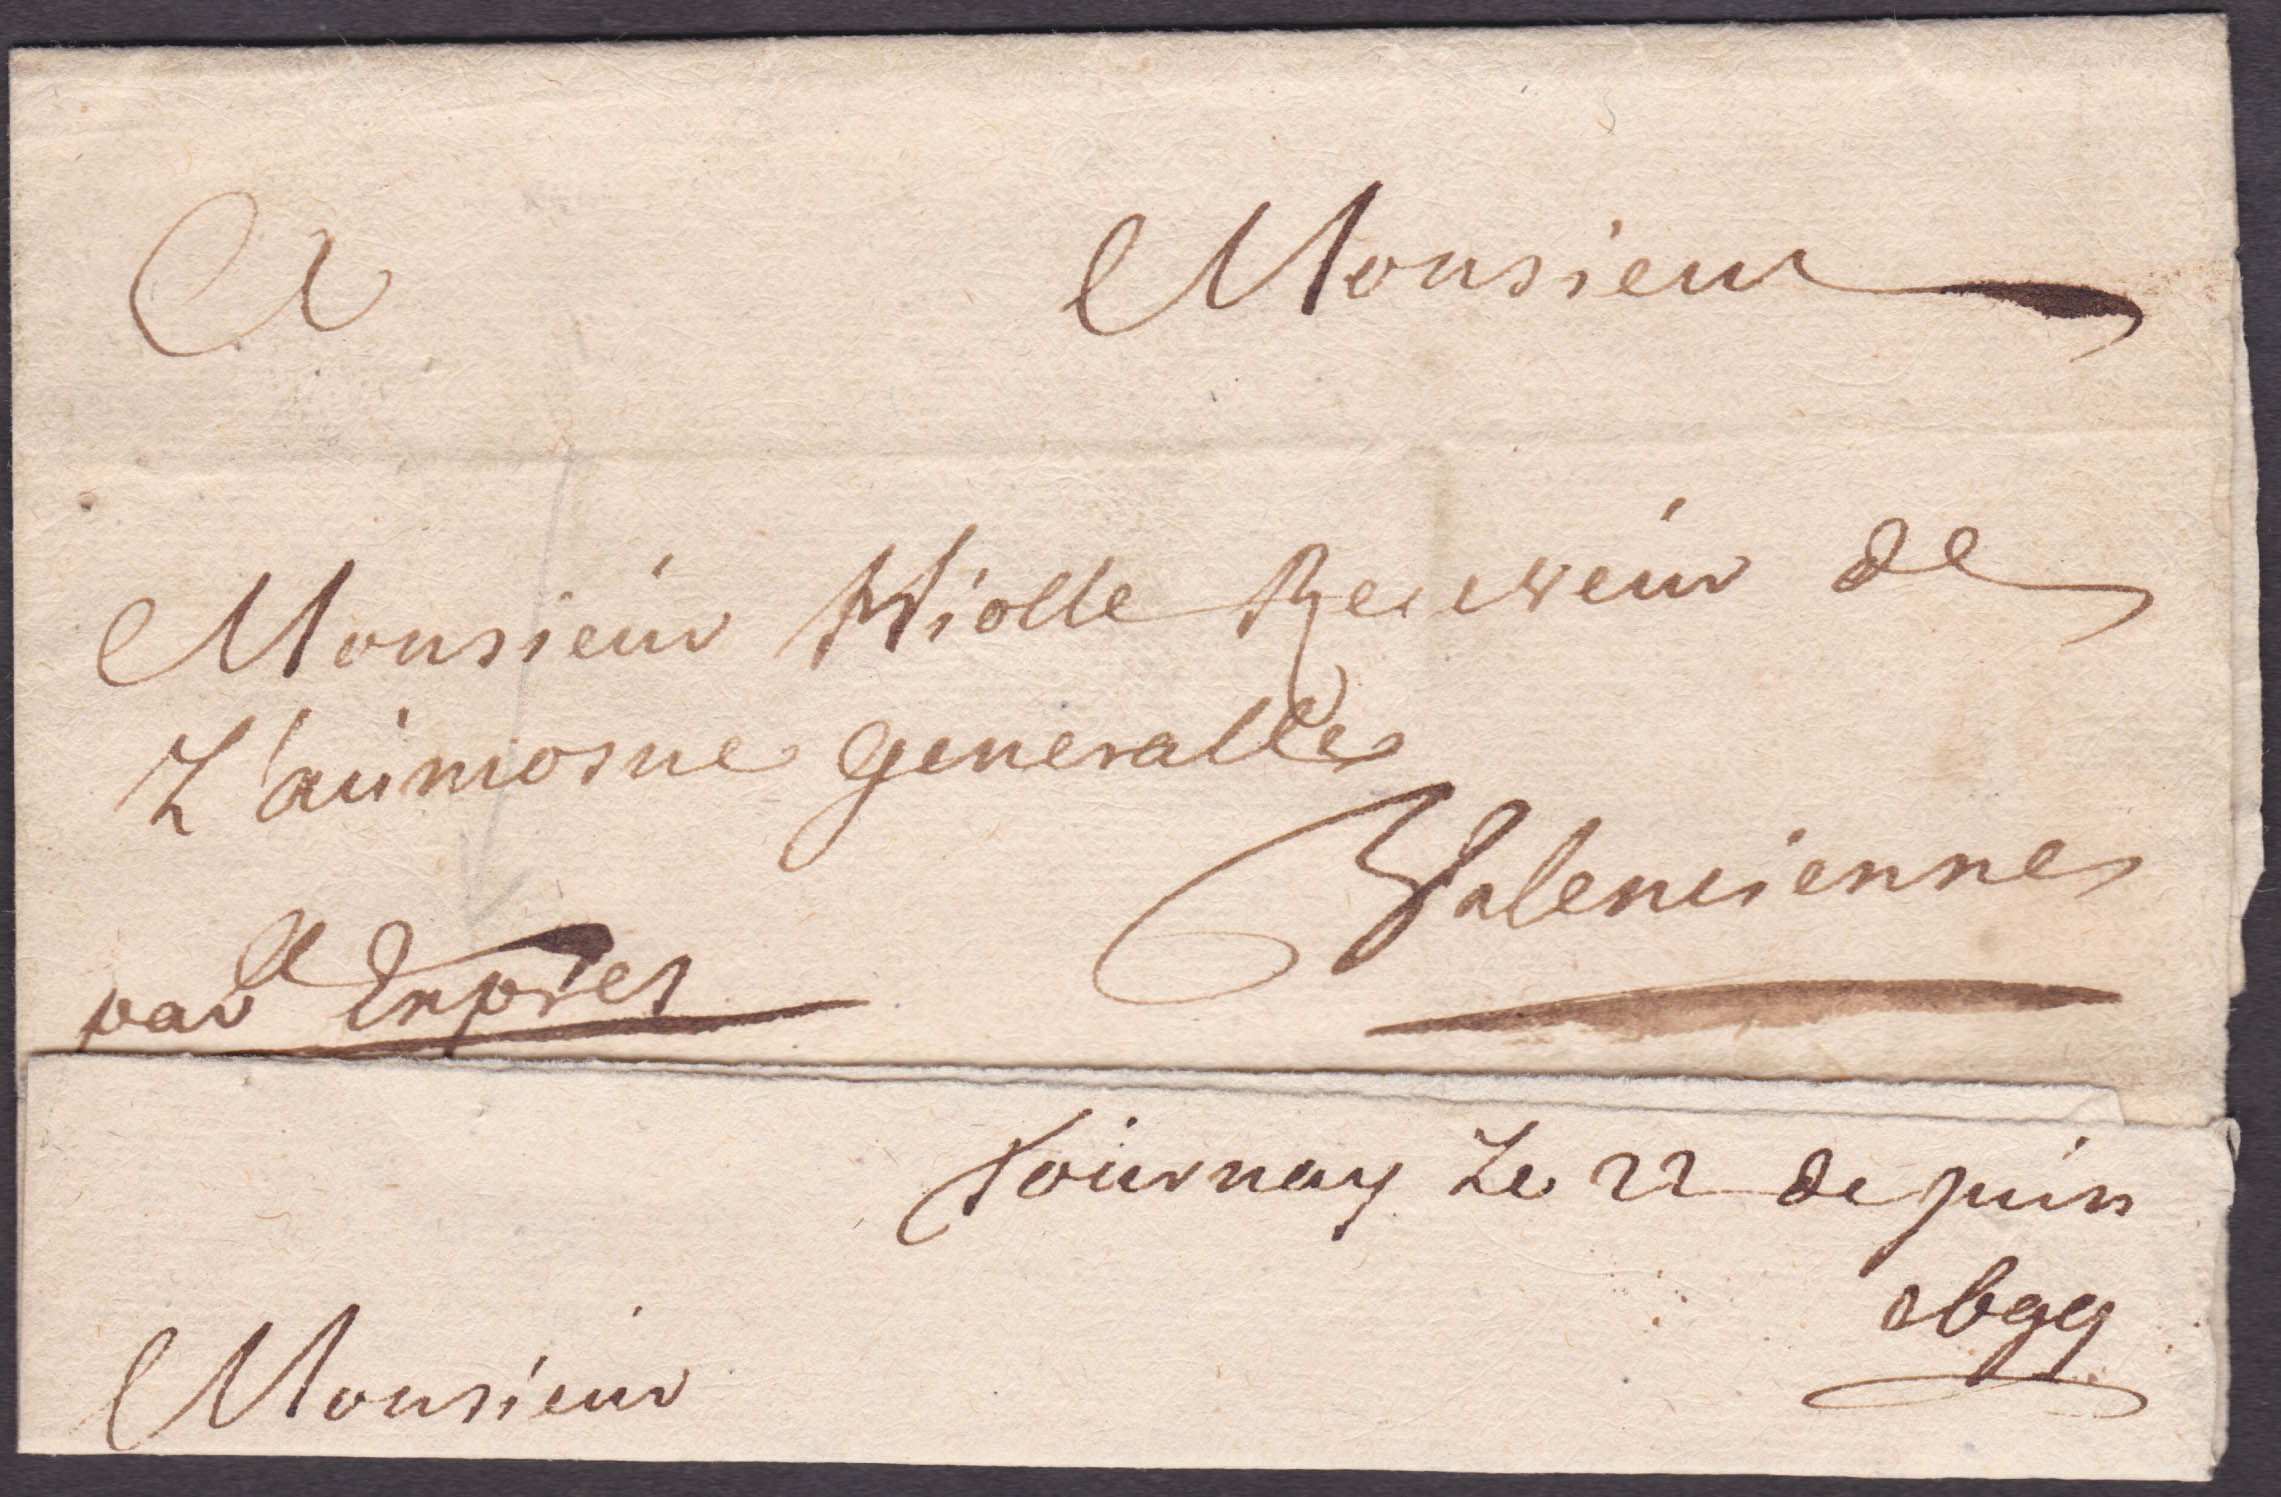 A Monsieur
Monsieur Wiolle Receveur de
L'aumosne generalle
Valencienne
par Exprès
Tournay Le 22 de juin
Monsieur